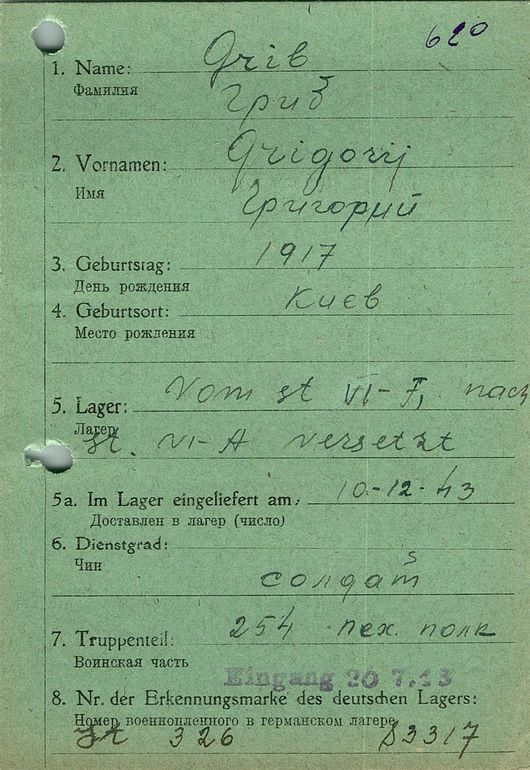 620
1. Name: Grib
Фамилия
Гриб
2. Vornamen: Grigorij
Имя
Григорий
3. Geburtstag: 1917
День рождения
4. Geburtsort: Києв
Место рождения
5. Lager: Vom st VI-F, nach
Лагерь
St. VI-A versetzt
5a. Im Lager eingeliefert am: 10-12-43
Доставлен в лагер (число)
6. Dienstgrad:
Чин
солдат
7. Truppenteil: 254 пех. полк
Воинская часть
Eingang 20 7.43
8. Nr. der Erkennungsmarke des deutschen Lagers:
Номер военнопленного в германском лагере
St 326 83317